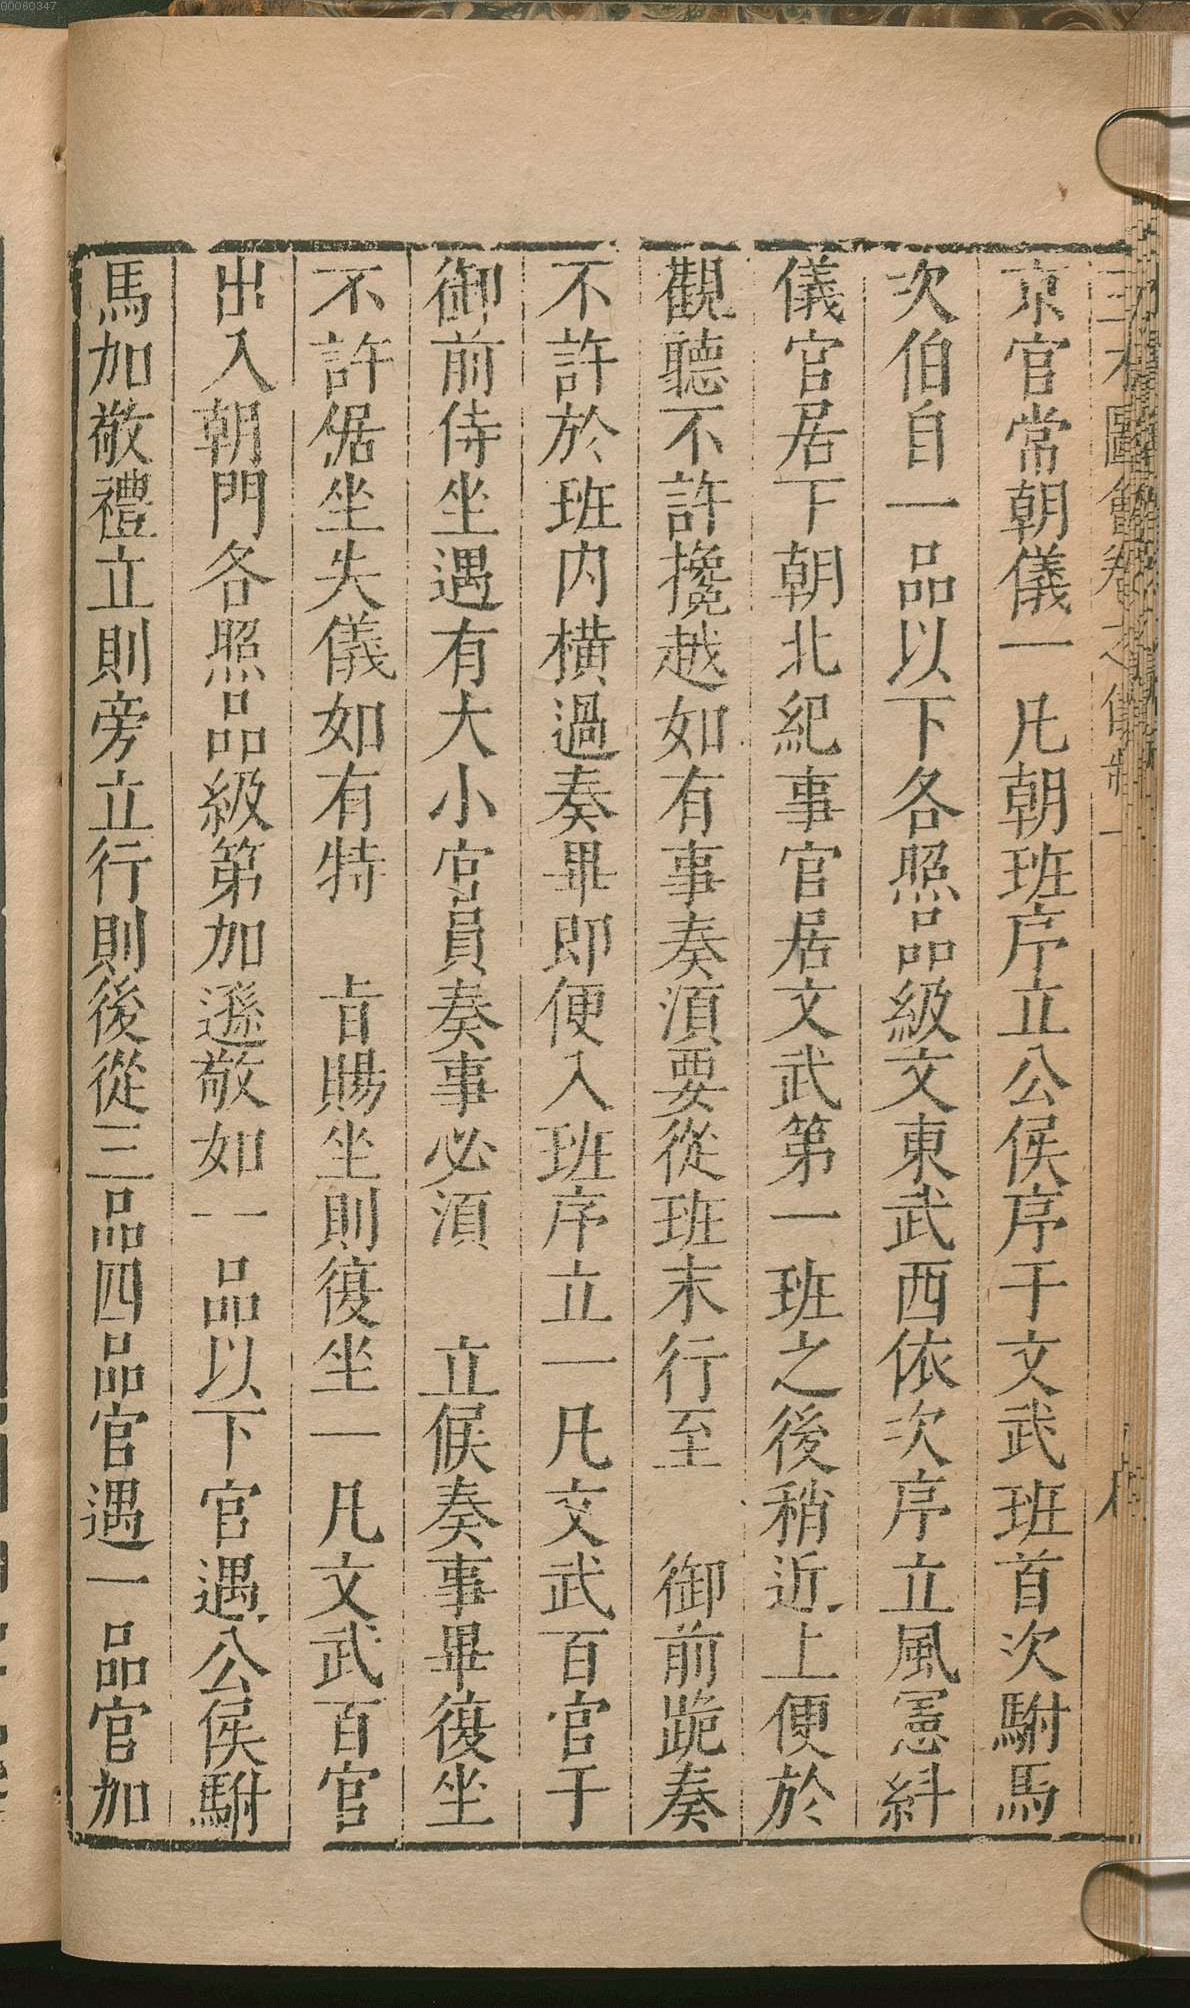 00060347
京官常朝儀一凡朝班序立公侯序于文武班首次駙馬
次伯自一品以下各照品級文東武西依次序立風憲糾
儀官居下朝北紀事官居文武第一班之後稍近上便於
觀聽不許攙越如有事奏湏要從班末行至 御前跪奏
不許於班内橫過奏畢即便入班序立一凡文武百官于
御前侍坐遇有大小官員奏事必湏 立候奏事畢復坐
不許倨坐失儀如有特 㫖賜坐則復坐一凡文武百官
出入朝門各照品級第加遜敬如一品以下官遇公侯駙
馬加敬禮立則旁立行則後從三品四品官遇一品官加